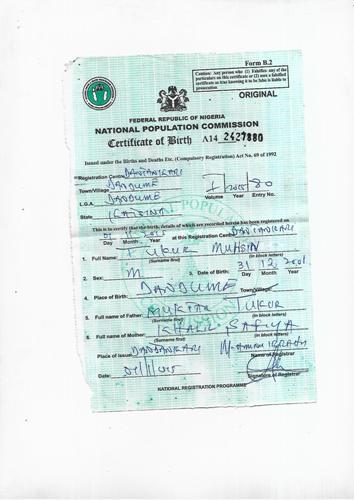 Form B.2
Caution: Any person who (1) Falsifies any of the
particulars on this certificate or (2) uses a falsified
certificate as true knowing it to be false is liable to
prosecution
ORIGINAL
FEDERAL REPUBLIC OF NIGERIA
NATIONAL POPULATION COMMISSION
Certificate of Birth A14 2427880
Issued under the Births and Deaths Etc. (Compulsory Registration) Act No. 69 of 1992
Registration Centre DANDANKARI
Town/Village DANDUME
L.G.A. DANDUME I 2015 80
Volume Year Entry No.
State KATSINA
This is to certify that the birth, details of which are recorded herein has been registered on
at this Registration Centre DANDANKARI
Day Month Year
1. Full Name: TUKUR MUHSIN
(Surname first) (in block letters)
2. Sex: M 3. Date of Birth: 31 12 2001
Day Month Year
4. Place of Birth: DANDUME
Town/Village
5. Full name of Father: MUKTAR TUKUR
(Surname first) (in block letters)
6. Full name of Mother: SAFIYA
(Surname first) (in block letters)
Place of Issue: DANDANKARI
Name of Registrar
Date:
Signature of Registrar
NATIONAL REGISTRATION PROGRAMME